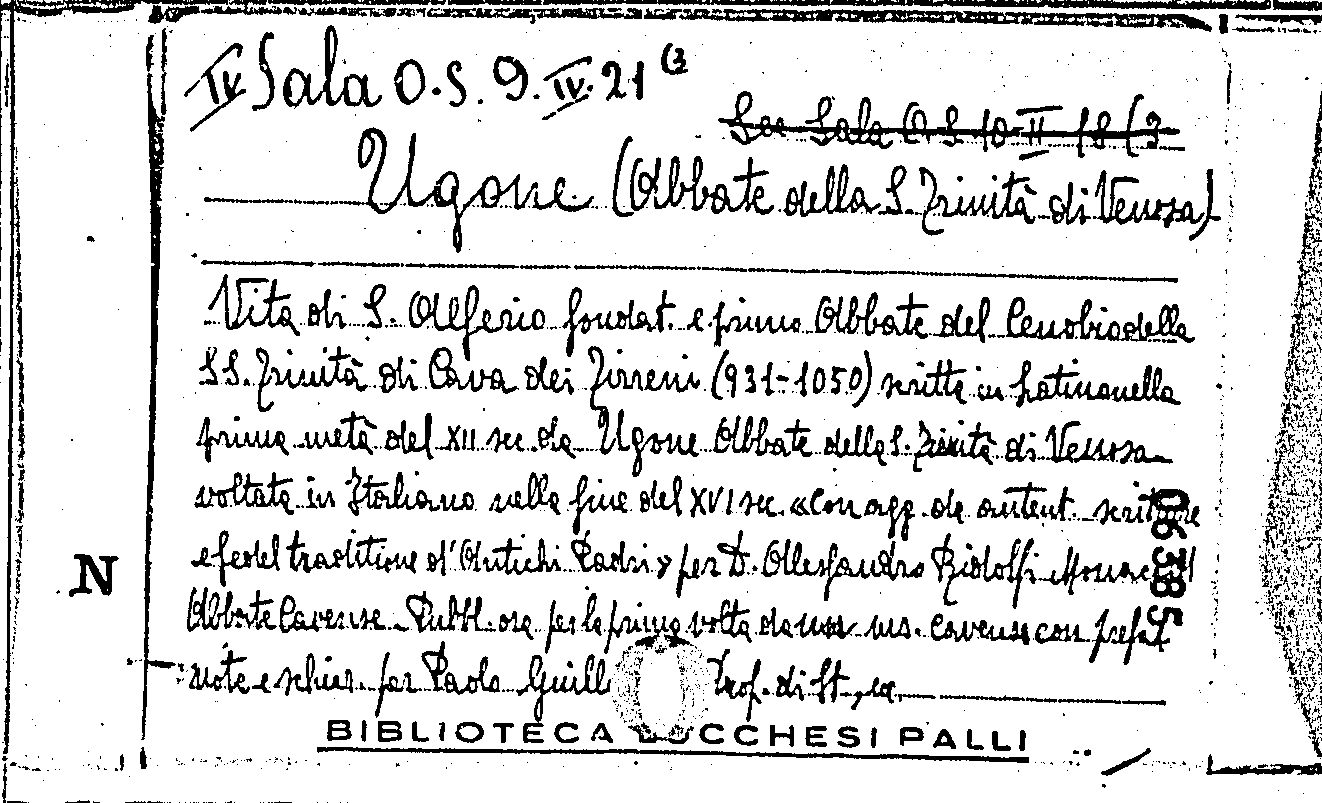 IV Sala O.S. 9. IV. 21 (3
Sala O.S. 10 II 18 (3
Ugone (Abbate della S. Trinità di Venosa)
Vita di S. Alferio fondat. e primo Abbate del Cenobio della
SS. Trinità di Cava dei Tirreni (931-1050) scritta in Latino nella
prima metà del XII sec. da Ugone Abbate della S. Trinità di Venosa
voltata in Italiano nella fine del XVI sec. «Con agg. da autent. scritture
e fedel traditione d'Antichi Padri» per D. Alessandro Ridolfi
Abbate Cavense. Pubbl. ora per la prima volta da un ms. cavense con prefaz
note e schiar. per Paolo Guill Prof. di St., ec.
BIBLIOTECA LUCCHESI PALLI
N
06385